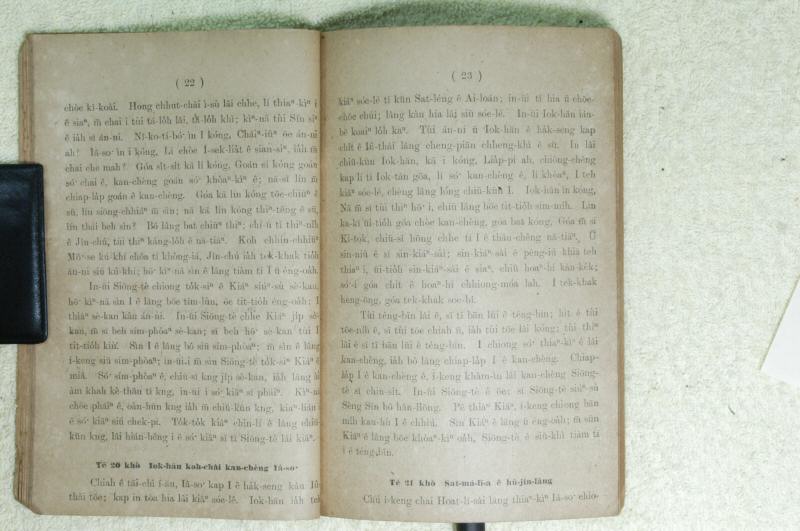 ( 22 )
chòe kî-koài. Hong chhut-chāi ì-sù lâi chhe, lí thiaⁿ-kìⁿ i
ê siaⁿ, m̄ chai i tùi tá-lo̍h lâi, tit-lo̍h khì; kìⁿ-nā tùi Sîn siⁿ
ê iā sī án-ni. Nî-ko-tí-bó· ìn I kóng, Cháiⁿ-iūⁿ ōe án-ni
ah? Iâ-so· ìn i kóng, Lí chòe Í-sek-lia̍t ê sian-siⁿ, iáh m̄
chai che mah? Góa si̍t-si̍t kā lí kóng, Goán sī kóng goán
só· chai ê, kan-chèng goán só· khòaⁿ-kìⁿ ê; nā-sī lín m̄
chiap-la̍p goán ê kan-chèng. Góa kā lín kóng tōe-chiūⁿ ê
sū, lín siōng-chhiáⁿ m̄ sìn; nā kā lín kóng thiⁿ-téng ê sū,
lín thài beh sìn? Bô lâng bat chiūⁿ thiⁿ; chí-ū tì thiⁿ-nih
ê Jîn-chú, tùi thiⁿ kàng-lo̍h ê nā-tiāⁿ. Koh chhin-chhiūⁿ
Mô·-se kú-khí chôa tī khòng-iá, Jîn-chú iáh tek-khak tio̍h
án-ni siū kú-khí; hō· kìⁿ-nā sìn ê lâng tiàm tī I ū éng-oa̍h.
In-ūi Siōng-tè chiong to̍k-siⁿ ê Kiáⁿ siúⁿ-sù sè-kan,
hō· kìⁿ-nā sìn I ê lâng bōe tîm-lûn, ōe tit-tio̍h éng-oa̍h; I
thiàⁿ sè-kan kàu án-ni. In-ūi Siōng-tè chhe Kiáⁿ ji̍p sè-
kan, m̄ sī beh sím-phòaⁿ sè-kan; sī beh hō· sè-kan tùi I
tit-tio̍h kiù. Sìn I ê lâng bô siū sím-phòaⁿ; m̄ sìn ê lâng
í-keng siū sím-phòaⁿ; in-ūi i m̄ sìn Siōng-tè to̍k-siⁿ Kiáⁿ ê
miâ. Só· sím-phòaⁿ ê, chiū-sī kng ji̍p sè-kan, iáh lâng ài
àm khah kè-thâu tì kng, in-ūi i só· kiâⁿ sī pháiⁿ. Kìⁿ-nā
chòe pháiⁿ ê, oàn-hūn kng iáh m̄ chiū-kūn kng, kiaⁿ-liáu
ê só· kiâⁿ siū chek-pī. To̍k-to̍k kiâⁿ chin-lí ê lâng chiū-
kūn kng, lâi hián-bêng i ê só· kiâⁿ sī tī Siōng-tè lâi kiâⁿ.
Tē 20 khò Iok-hān koh-chài kan-chèng Iâ-so·
Chiah ê tāi-chì í-āu, Iâ-so· kap I ê ha̍k-seng kàu Iû-
thài tōe; kap in tòa hia lâi kiâⁿ sóe-lé. Iok-hān iáh teh
( 23 )
kiâⁿ sóe-lé tī kūn Sat-léng ê Ai-loán; in-ūi tī hia ū chōe-
chōe chúi; lâng kàu hia lâi siū sóe-lé. In-ūi Iok-hān iáu-
bē koaiⁿ lo̍h kaⁿ. Tùi án-ni ū Iok-hān ê ha̍k-seng kap
chi̍t ê Iû-thài lâng cheng-piān chheng-khì ê sū. In lâi
chiū-kūn Iok-hān, kā i kóng, La̍p-pí ah, chiông-chêng
kap lí tī Iok-tàn gōa, lí só· kan-chèng ê, lí khòaⁿ, I teh
kiâⁿ sóe-lé, chèng lâng lóng chiū-kūn I. Iok-hān ìn kóng,
Nā m̄ sī tùi thiⁿ hō· i, chiū lâng bōe tit-tio̍h sím-mi̍h. Lín
ka-kī ūi-tio̍h góa chòe kan-chèng, góa bat kóng, Góa m̄ sī
Ki-tok, chiū-sī hōng chhe tī I ê thâu-chêng nā-tiāⁿ. Ū
sin-niû ê sī sin-kiáⁿ-sài; sin-kiáⁿ-sài ê pêng-iú khiā teh
thiaⁿ i, ūi-tio̍h sin-kiáⁿ-sài ê siaⁿ, chiū hoaⁿ-hí kàu-ke̍k;
só·-í góa chit ê hoaⁿ-hí chhiong-móa lah. I tek-khak
heng-ōng, góa tek-khak soe-bî.
Tùi téng-bīn lâi ê, sī tī bān lūi ê téng-bīn; hit ê tùi
tōe-nih ê, sī tùi tōe chiah ū, iáh tùi tōe lâi kóng; tùi thiⁿ
lâi ê sī tī bān lūi ê téng-bīn. I chiong só· thiaⁿ-kìⁿ ê lâi
kan-chèng, iáh bô lâng chiap-la̍p I ê kan-chèng. Chiap-
la̍p I ê kan-chèng ê, í-keng khàm-ìn lâi kan-chèng Siōng-
tè sī chin-si̍t. In-ūi Siōng-tè ê ōe; sī Siōng-tè siúⁿ-sù
Sèng Sîn bô hān-liōng. Pē thiàⁿ Kiáⁿ, í-keng chiong bān
mi̍h kau-hù I ê chhiú. Sìn Kiáⁿ ê lâng ū éng-oa̍h; m̄ sìn
Kiáⁿ ê lâng bōe khòaⁿ-kìⁿ oa̍h, Siōng-tè ê siū-khì tiàm tī
i ê téng-bīn.
Tē 21 khò Sat-má-lī-a ê hū-jîn-lâng
Chú í-keng chai Hoat-lī-sài lâng thiaⁿ-kìⁿ Iâ-so· chio-